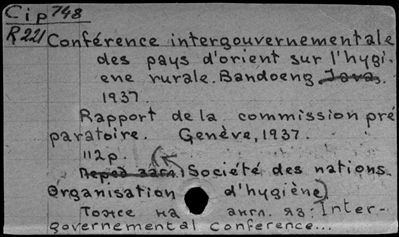 Cip 748
R221 Conférence intergouvernementale
des pays d'orient sur l'hygi-
ene rurale. Bandoeng Java.
1937.
Rapport de la commission pré
paratoire. Genève, 1937.
112 p.
(Société des nations.
Organisation d'hygiène)
Тоже на англ. яз: Inter-
governemental Conference...